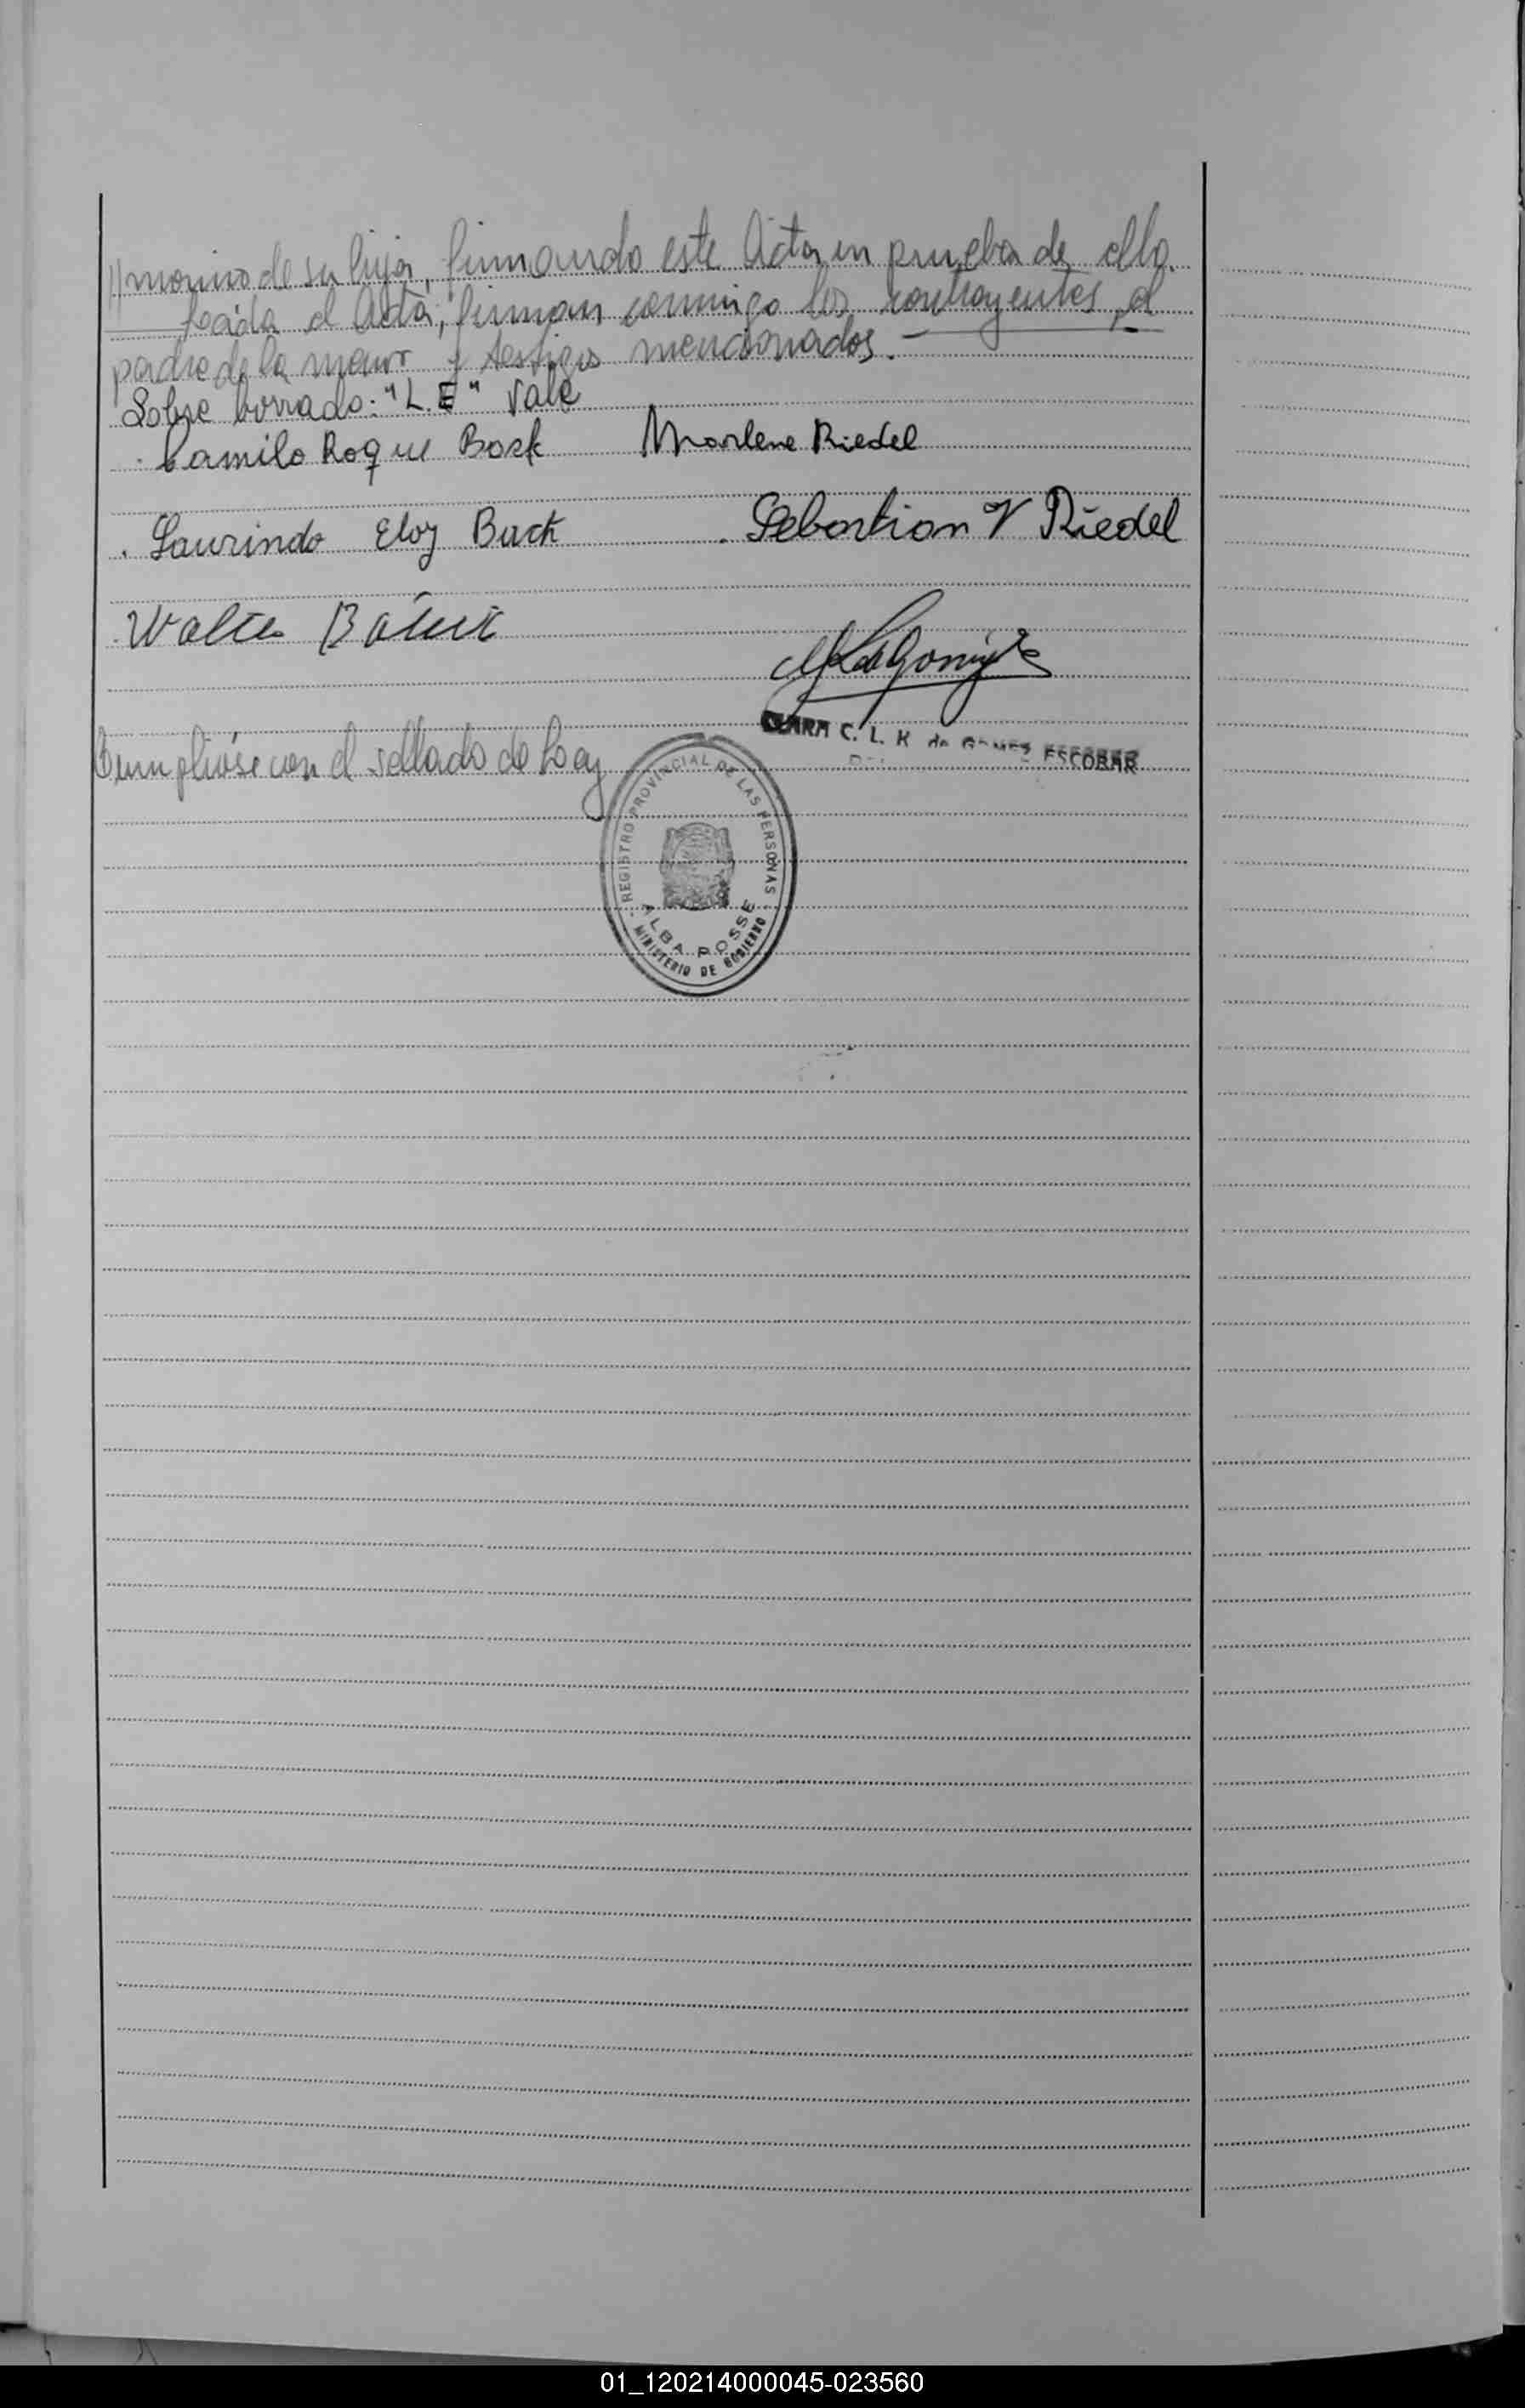 //monio de su hija, firmando este Acta en prueba de ello.
Leída el Acta, firman conmigo los contrayentes, el
padre de la menor y testigos mencionados.-
Sobre borrado: "L.E" Vale
Camilo Roque Bock Marlene Riedel
Laurindo Eloy Buck Sebastian V Riedel
Walter
CLARA C. L. K de GOMEZ ESCOBAR
Cumplióse con el sellado de Ley
REGISTRO PROVINCIAL DE LAS PERSONAS
ALBA POSSE
MINISTERIO DE GOBIERNO
01_120214000045-023560